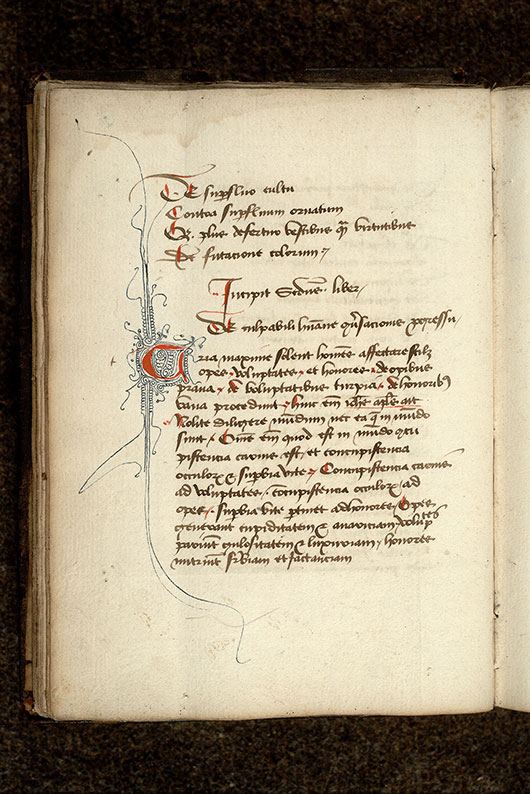 De supfluo cultu
Contra supfluum ornatum
Qr plus defertur vestibus qm virtutibus
De fucacione colorum
Incipit Scdus liber
De culpabili humane cusacionis pgressu
Tria maxime solent homies affectare scilz
opes voluptates et honores de opibus
praua de voluptatibus turpia de honoribus
vana procedunt hinc em iohes aplus ait
Nolite diligere mundum nec ea que in mundo
sunt Omne em quod est in mundo
pistencia carnis est et concupistencia
oculorum et supbia vite Concupistencia carnis
ad voluptates concupistencia oculorum ad
opes supbia vite ptinet ad honores Opes
generant cupiditatem et auariciam voluptates
pariunt gulositatem et luxuriam honores
nutriunt supbiam et iactanciam